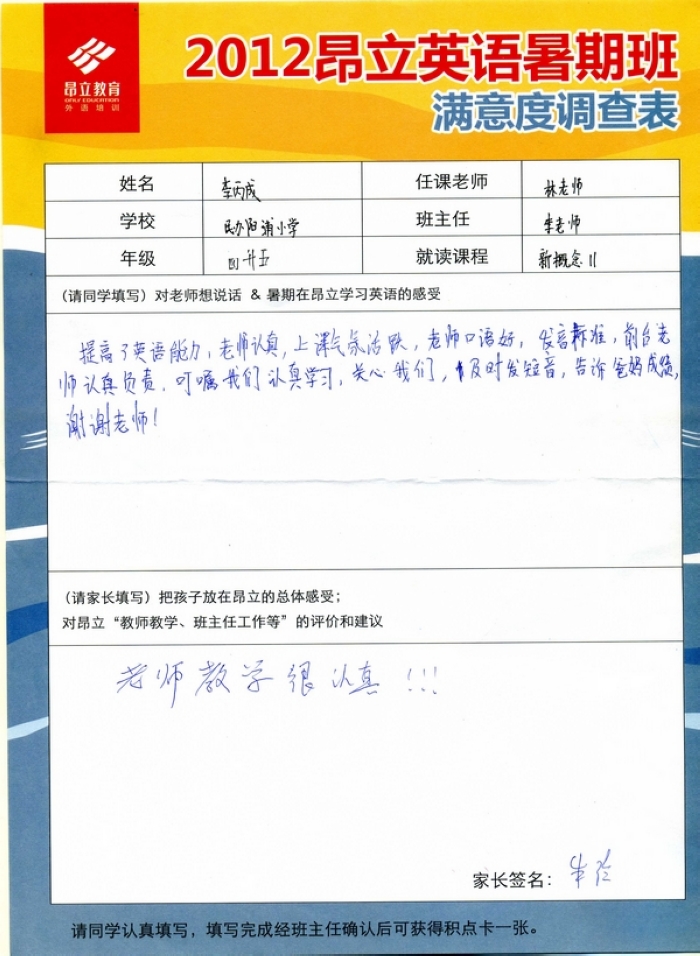 昂立教育
ONLY EDUCATION
外语培训
2012昂立英语暑期班
满意度调查表
姓名 李丙成 任课老师 林老师
学校 民办阳浦小学 班主任 李老师
年级 四升五 就读课程 新概念II
(请同学填写)对老师想说话 & 暑期在昂立学习英语的感受
提高了英语能力,老师认真,上课气氛活跃,老师口语好,发音标准,前台老
师认真负责,叮嘱我们认真学习,关心我们,及时发短音,告诉爸妈成绩,
谢谢老师!
(请家长填写)把孩子放在昂立的总体感受;
对昂立“教师教学、班主任工作等”的评价和建议
老师教学很认真!!!
家长签名:
请同学认真填写,填写完成经班主任确认后可获得积点卡一张。